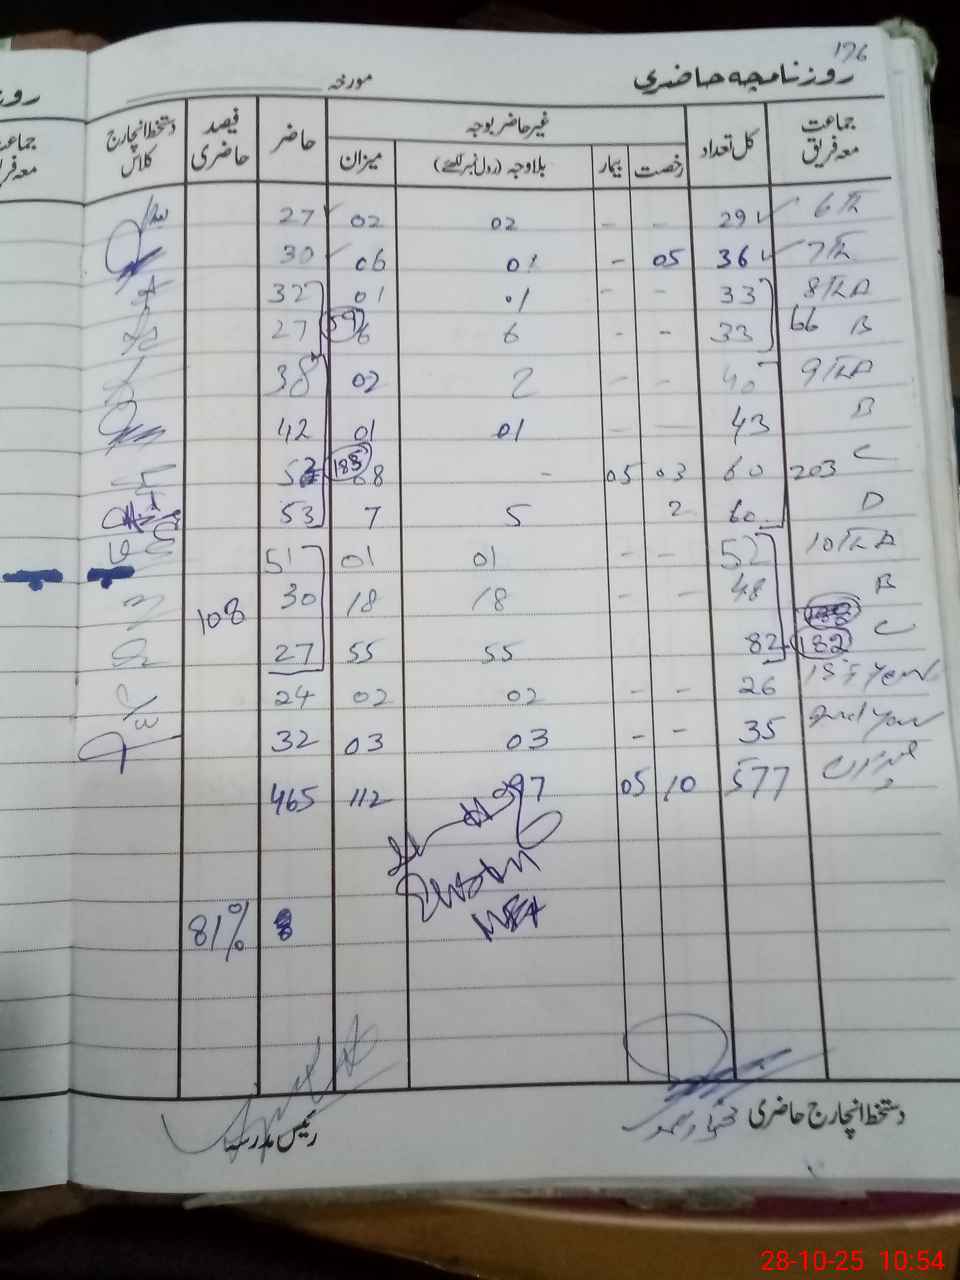 176
روزنامچہ حاضری مورخہ
جماعت معہ فریق کل تعداد غیر حاضر بوجہ حاضر فیصد حاضری دستخط انچارج کلاس
رخصت بیمار بلاوجہ (رول نمبر لکھئے) میزان
6th 29 - - 02 02 27
7th 36 05 - 01 06 30
8th A 33 - - 01 01 32
B 66 33 - - 6 6 59 27
9th A 40 - - 2 02 38
B 43 - - 01 01 42
C 203 60 03 05 - 08 185 52
D 60 2 5 7 53
10th A 52 - - 01 01 51
B 48 - - 18 18 30 108
C 182 82 55 55 27
1st Year 26 - - 02 02 24
2nd Year 35 - - 03 03 32
میزان 577 10 05 097 112 465
81%
دستخط انچارج حاضری
رئیس مدرسہ
روز
جماعت
معہ فر
28-10-25 10:54